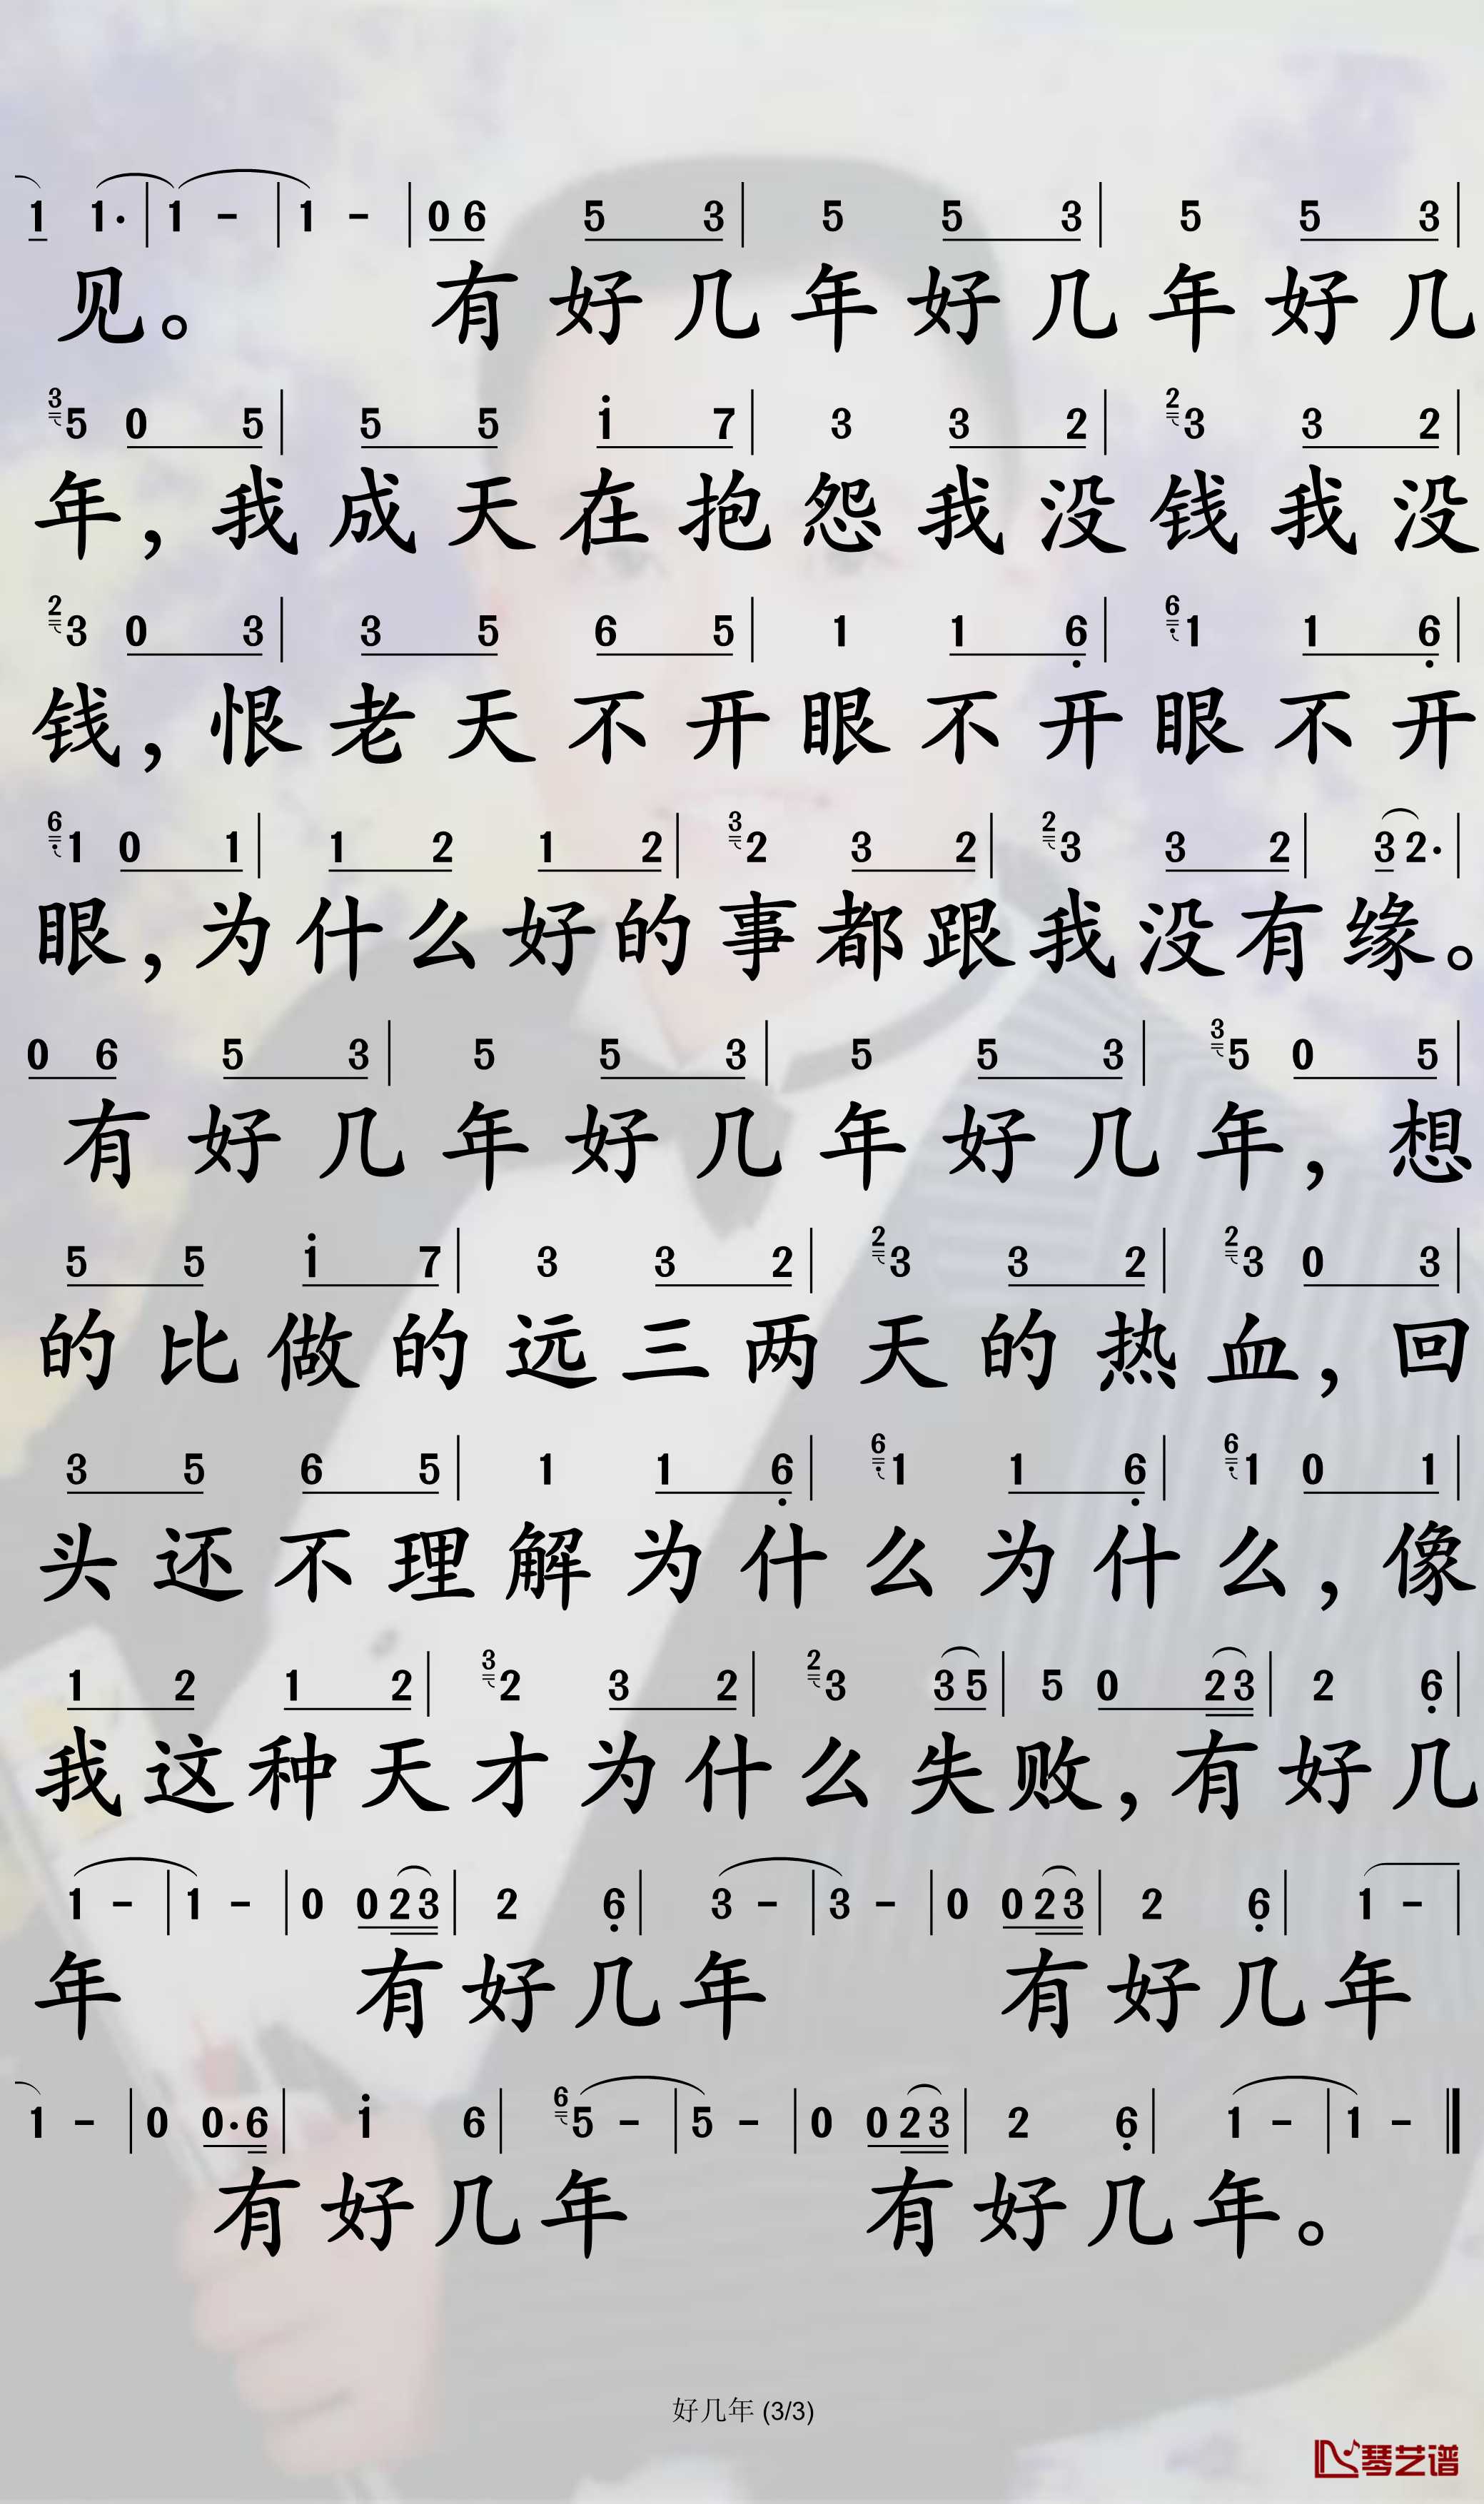 1 1·|1 -|1 -|0 6 5 3|5 5 3|5 5 3|
见。 有好几年好几年好几
3 5 0 5|5 5 i 7|3 3 2|2 3 3 2|
年，我成天在抱怨我没钱我没
2 3 0 3|3 5 6 5|1 1 6̣|6̣ 1 1 6̣|
钱，恨老天不开眼不开眼不开
6̣ 1 0 1|1 2 1 2|3 2 3 2|2 3 3 2|3 2·|
眼，为什么好的事都跟我没有缘。
0 6 5 3|5 5 3|5 5 3|3 5 0 5|
有好几年好几年好几年，想
5 5 i 7|3 3 2|2 3 3 2|2 3 0 3|
的比做的远三两天的热血，回
3 5 6 5|1 1 6̣|6̣ 1 1 6̣|6̣ 1 0 1|
头还不理解为什么为什么，像
1 2 1 2|3 2 3 2|2 3 3 5|5 0 2 3|2 6̣|
我这种天才为什么失败，有好几
1 -|1 -|0 0 2 3|2 6̣|3 -|3 -|0 0 2 3|2 6̣|1 -|
年 有好几年 有好几年
1 -|0 0·6|i 6|6 5 -|5 -|0 0 2 3|2 6̣|1 -|1 -‖
有好几年 有好几年。
好几年 (3/3)
琴艺谱